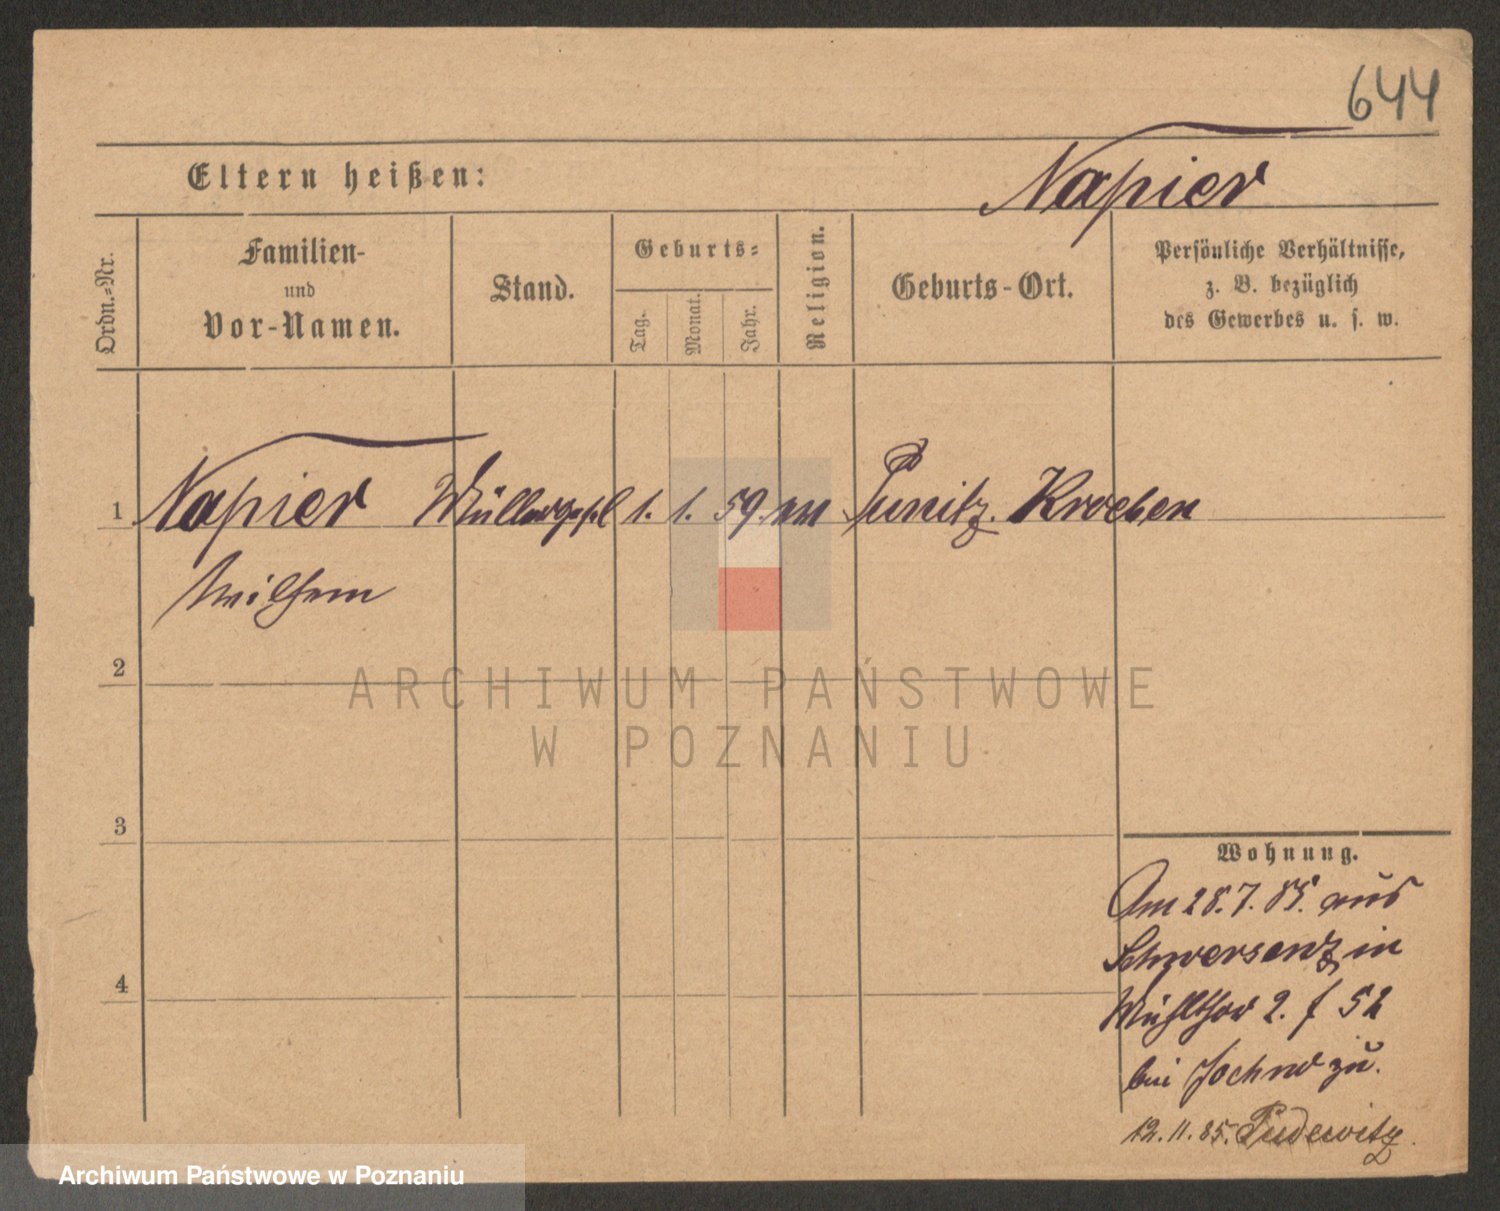 644
Eltern heißen:
Napier
Ordn.-Nr.
Familien-
und
Vor-Namen.
Stand.
Geburts-
Tag.
Monat.
Jahr.
Religion.
Geburts-Ort.
Persönliche Verhältnisse,
z. B. bezüglich
des Gewerbes u. s. w.
1 Napier Müllerges. 1. 1. 59. Punitz. Kroeben
Wilhem
2
ARCHIWUM PAŃSTWOWE
W POZNANIU
3
4
Wohnung.
Am 28.7.85. aus
Schwersenz in
Mühlthor 2. f 52
bei zu.
12.11.85. Pudewitz.
Archiwum Państwowe w Poznaniu